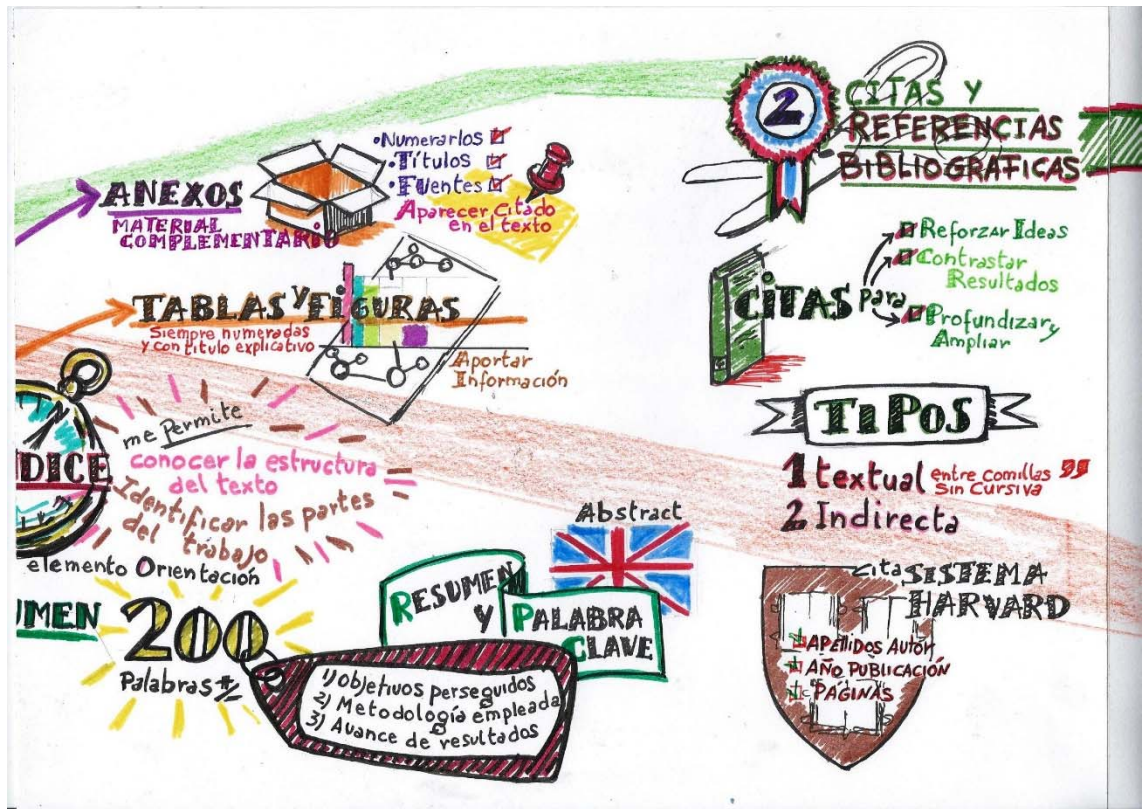 ANEXOS
MATERIAL
COMPLEMENTARIO
•Numerarlos
•Títulos
•Fuentes
Aparecer citado
en el texto
TABLAS Y FIGURAS
Siempre numeradas
y con título explicativo
Aportar
Información
DICE
me permite
conocer la estructura
del texto
Identificar las partes
del trabajo
elemento Orientación
UMEN
200
Palabras +/-
Abstract
RESUMEN
Y PALABRA
CLAVE
1) Objetivos perseguidos
2) Metodología empleada
3) Avance de resultados
2
CITAS Y
REFERENCIAS
BIBLIOGRÁFICAS
CITAS para
Reforzar Ideas
Contrastar
Resultados
Profundizar y
Ampliar
TIPOS
1 textual entre comillas ”
Sin Cursiva
2 Indirecta
cita SISTEMA
HARVARD
APELLIDOS AUTOR
AÑO PUBLICACIÓN
PÁGINAS